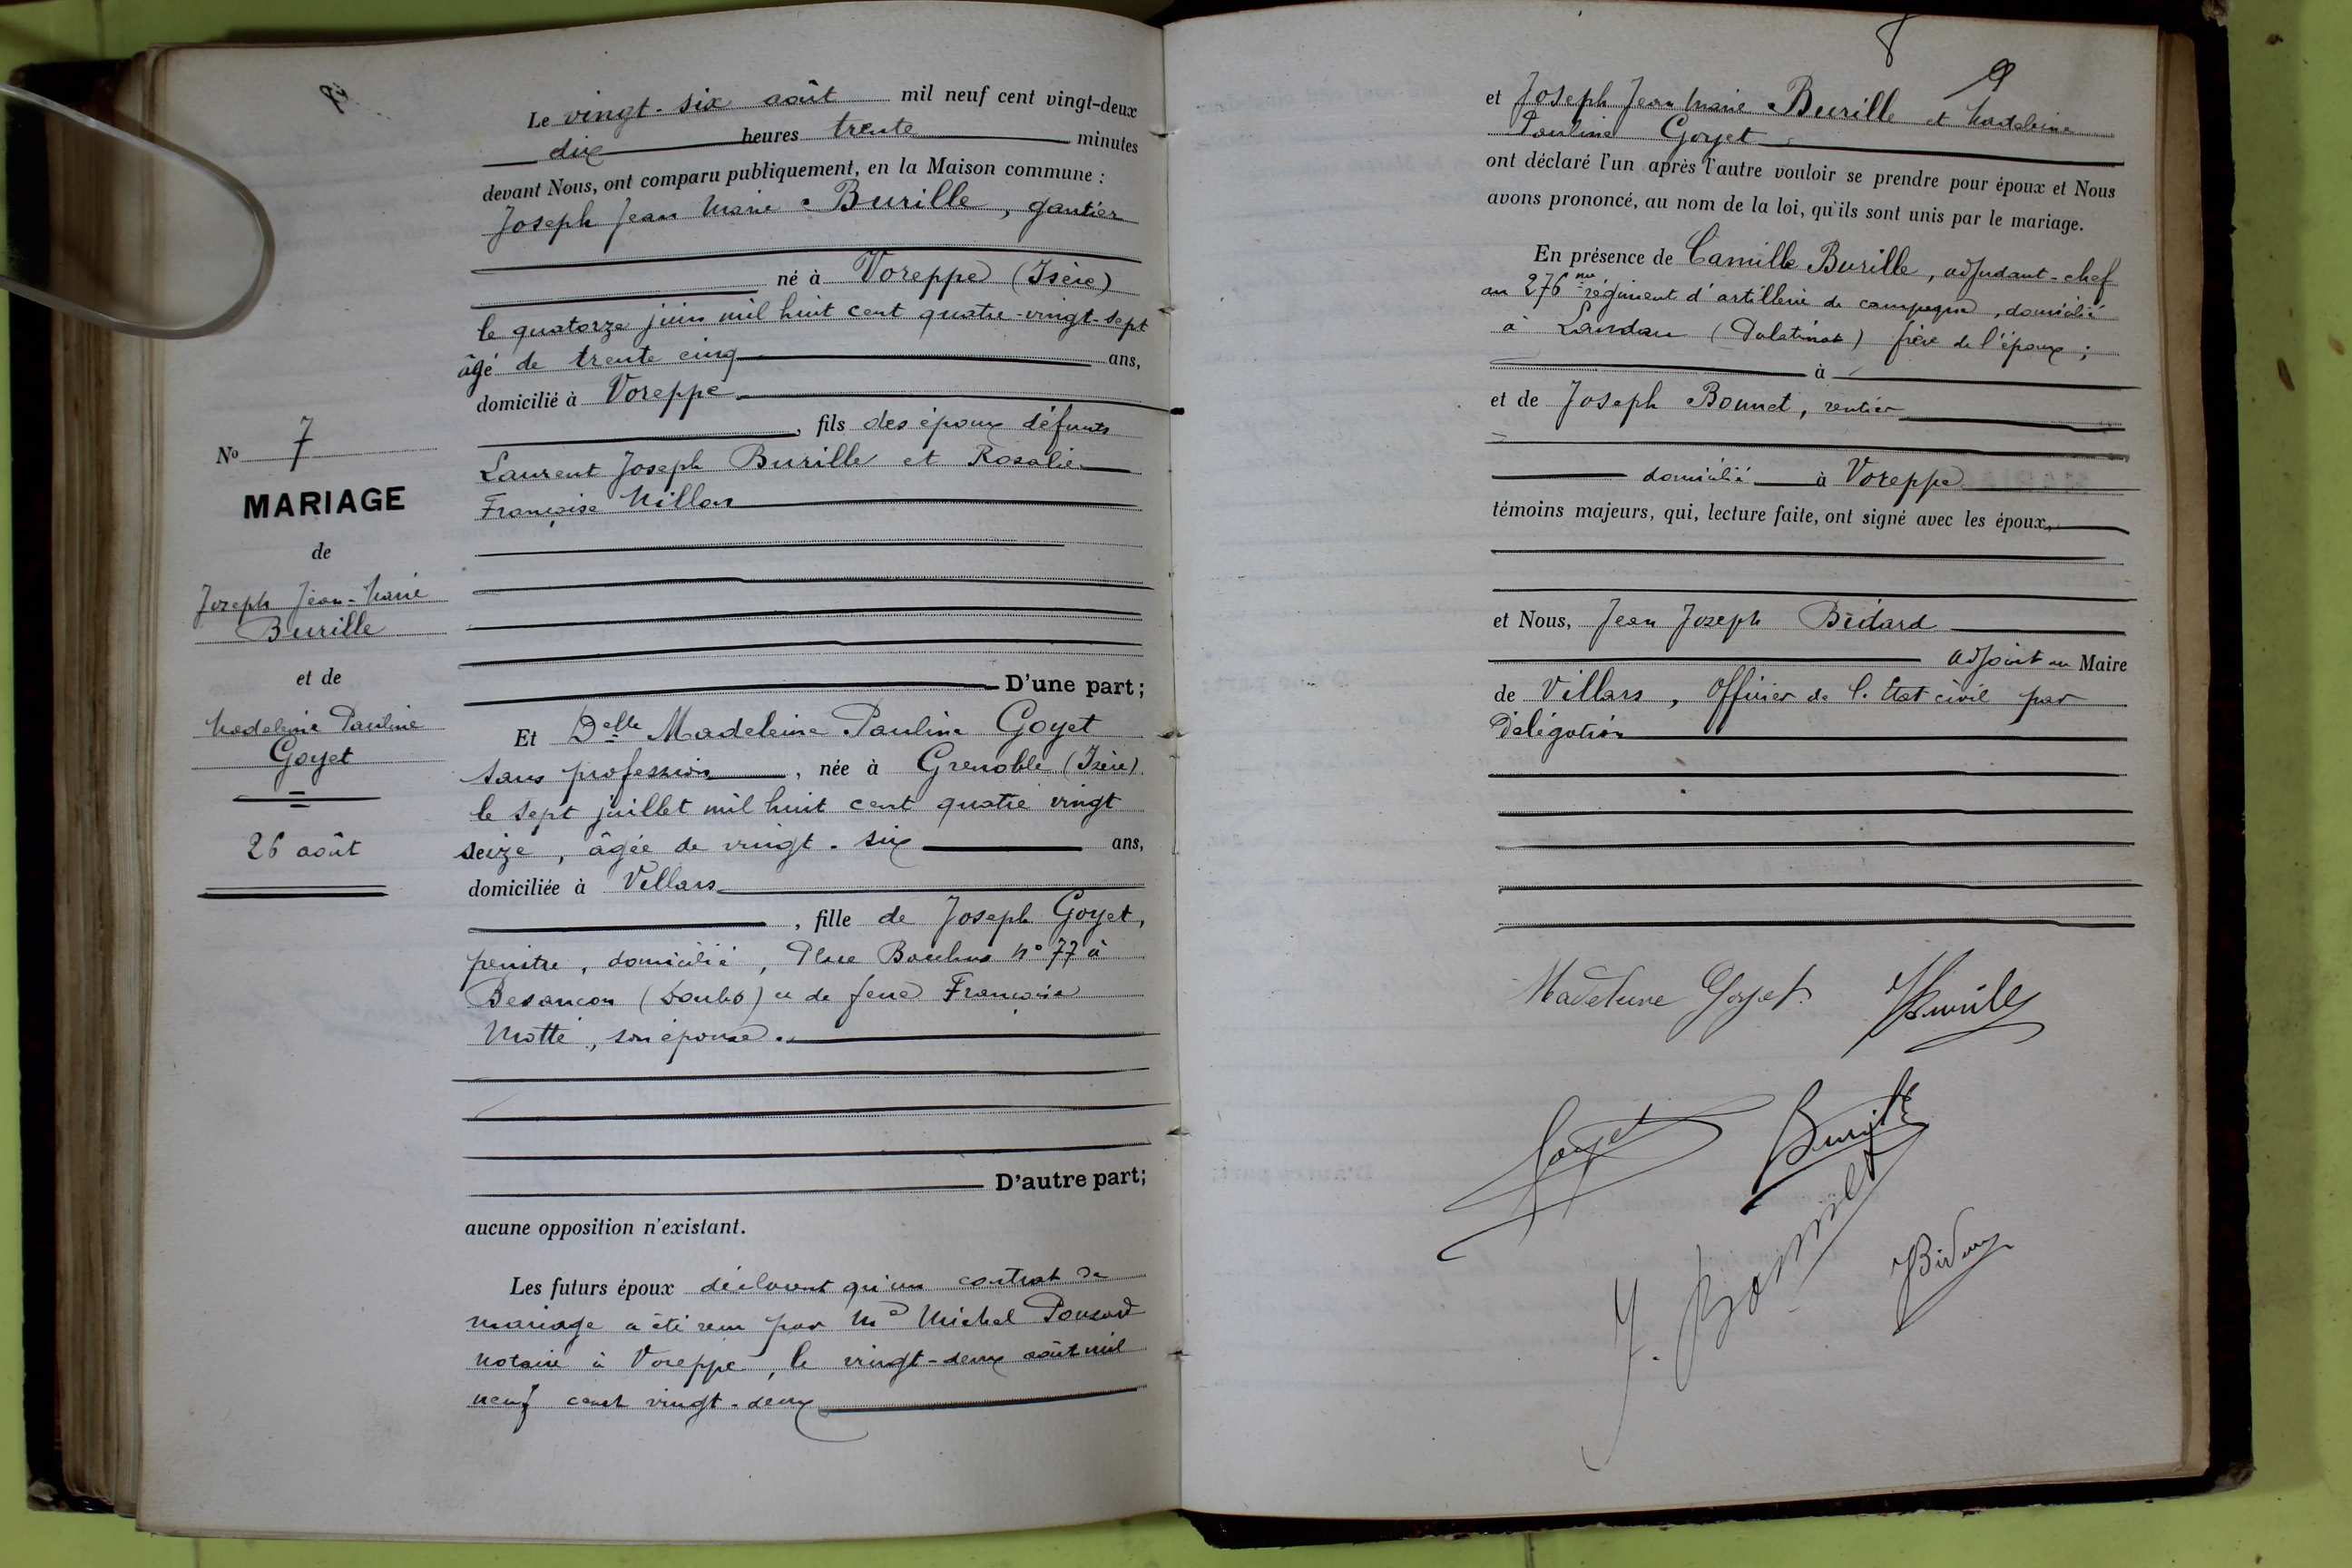 Le vingt-six août mil neuf cent vingt-deux
dix heures trente minutes
devant Nous, ont comparu publiquement, en la Maison commune :
Joseph Jean Marie Burille, gantier
né à Voreppe (Isère)
le quatorze juin mil huit cent quatre-vingt-sept
âgé de trente cinq ans,
domicilié à Voreppe
, fils des époux défunts
Laurent Joseph Burille et Rosalie
Françoise Millon
D'une part;
Et Delle Madeleine Pauline Goyet
sans profession, née à Grenoble (Isère)
le sept juillet mil huit cent quatre vingt
seize, âgée de vingt-six ans,
domiciliée à Villars
, fille de Joseph Goyet,
peintre, domicilié, Place n° 77 à
Besançon (Doubs) et de feue Françoise
Motte, son épouse.
D'autre part;
aucune opposition n'existant.
Les futurs époux déclarent qu'un contrat de
mariage a été reçu par Me Michel Ponsard
notaire à Voreppe, le vingt-deux août mil
neuf cent vingt-deux
No 7
MARIAGE
de
Joseph Jean-Marie
Burille
et de
Madeleine Pauline
Goyet
26 août
8
9
et Joseph Jean Marie Burille et Madeleine
Pauline Goyet
ont déclaré l'un après l'autre vouloir se prendre pour époux et Nous
avons prononcé, au nom de la loi, qu'ils sont unis par le mariage.
En présence de Camille Burille, adjudant-chef
au 276me régiment d'artillerie de campagne, domicilié
à Landau (Palatinat) frère de l'époux ;
à
et de Joseph Bonnet, rentier
domicilié à Voreppe
témoins majeurs, qui, lecture faite, ont signé avec les époux,
et Nous, Jean Joseph Bidard
adjoint au Maire
de Villars, Officier de l'Etat civil par
Délégation
Madeleine Goyet JBurille
Goyet Burille
J. Bonnet